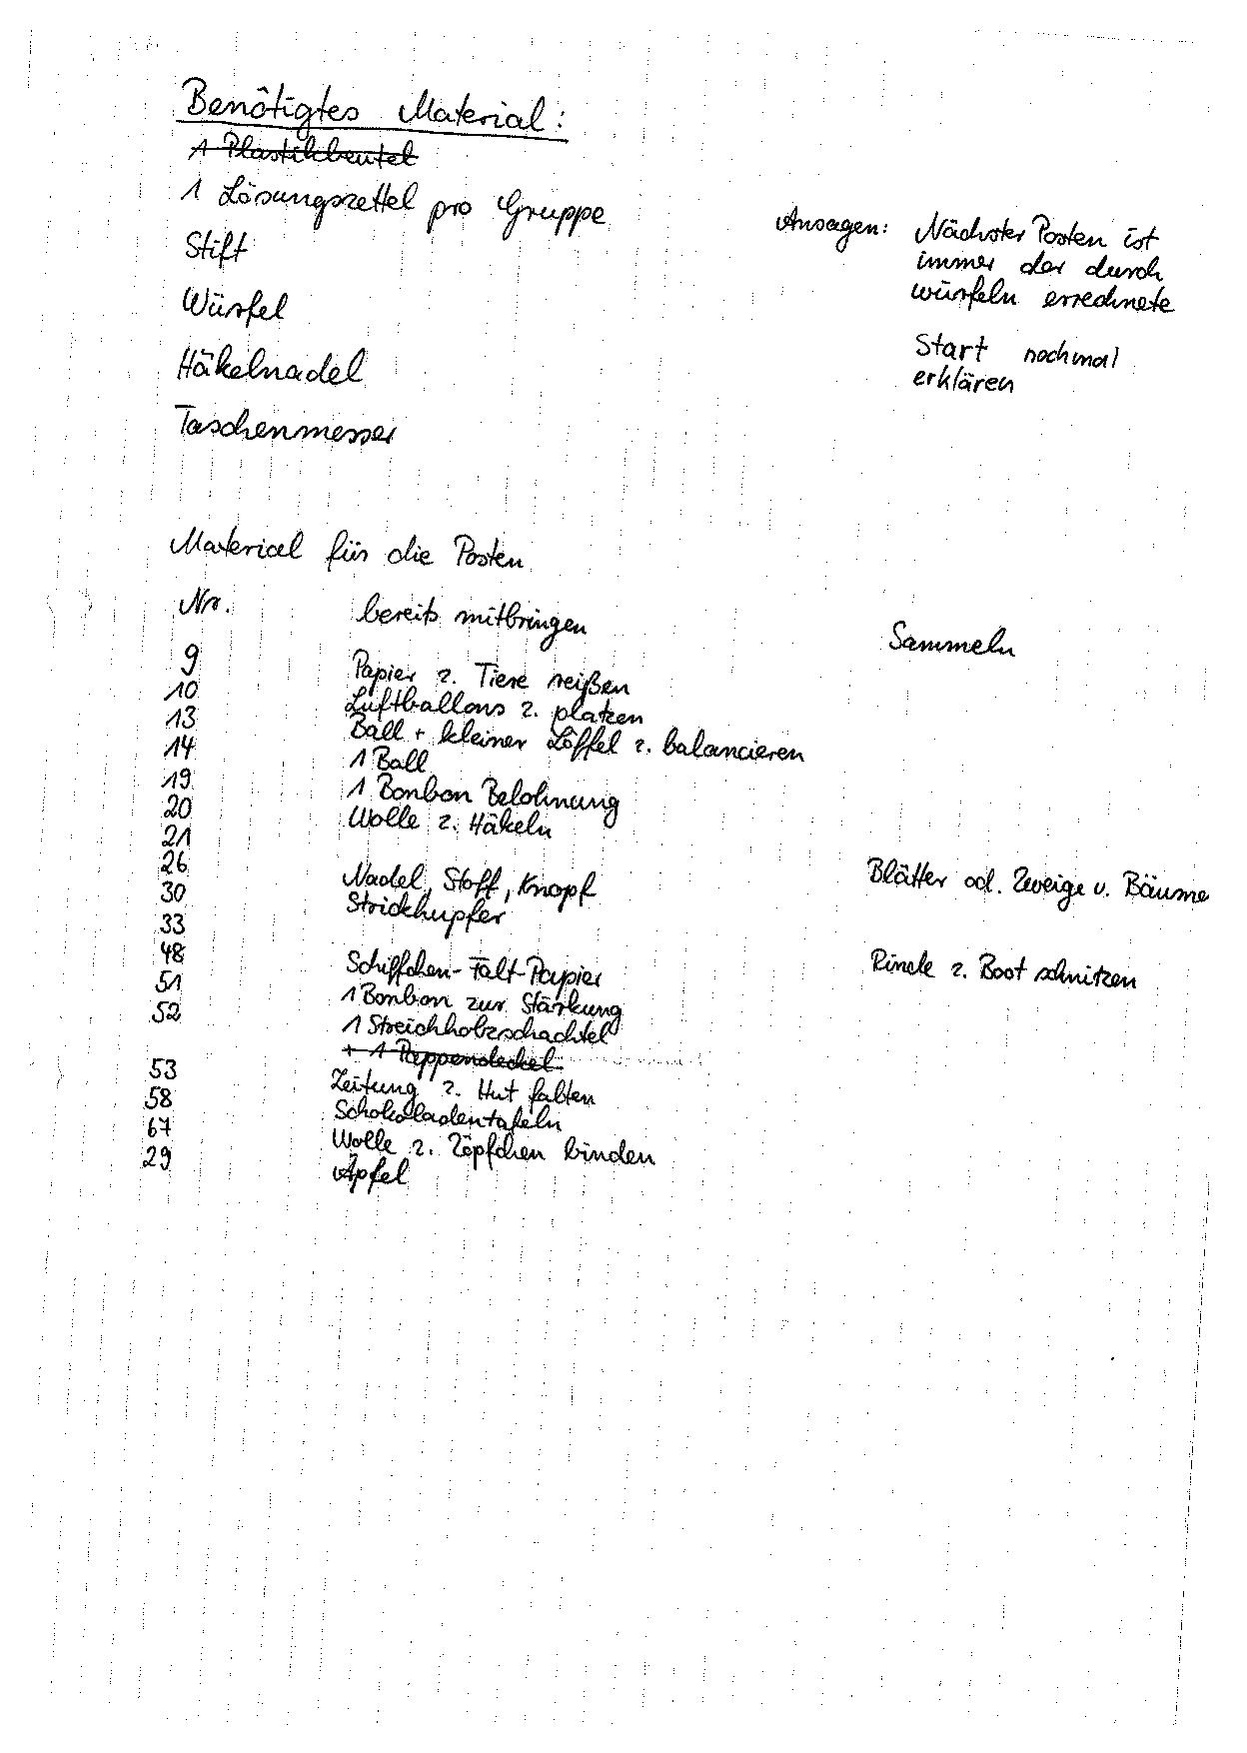 Benötigtes Material:
1 Plastikbeutel
1 Lösungszettel pro Gruppe
Stift
Würfel
Häkelnadel
Taschenmesser
Ansagen: Nächster Posten ist
immer der durch
würfeln errechnete
Start nochmal
erklären
Material für die Posten
Nr. bereits mitbringen Sammeln
9 Papier z. Tiere reißen
10 Luftballons z. platzen
13 Ball + kleiner Löffel z. balancieren
14 1 Ball
19 1 Bonbon Belohnung
20 Wolle z. Häkeln
21
26 Nadel, Stoff, Knopf Blätter od. Zweige v. Bäume
30 Strickhupfer
33
48 Schiffchen-Falt-Papier Rinde z. Boot schnitzen
51 1 Bonbon zur Stärkung
52 1 Streichholzschachtel
+ 1 Pappendeckel
53 Zeitung z. Hut falten
58 Schokoladentafeln
67 Wolle z. Zöpfchen binden
29 Äpfel